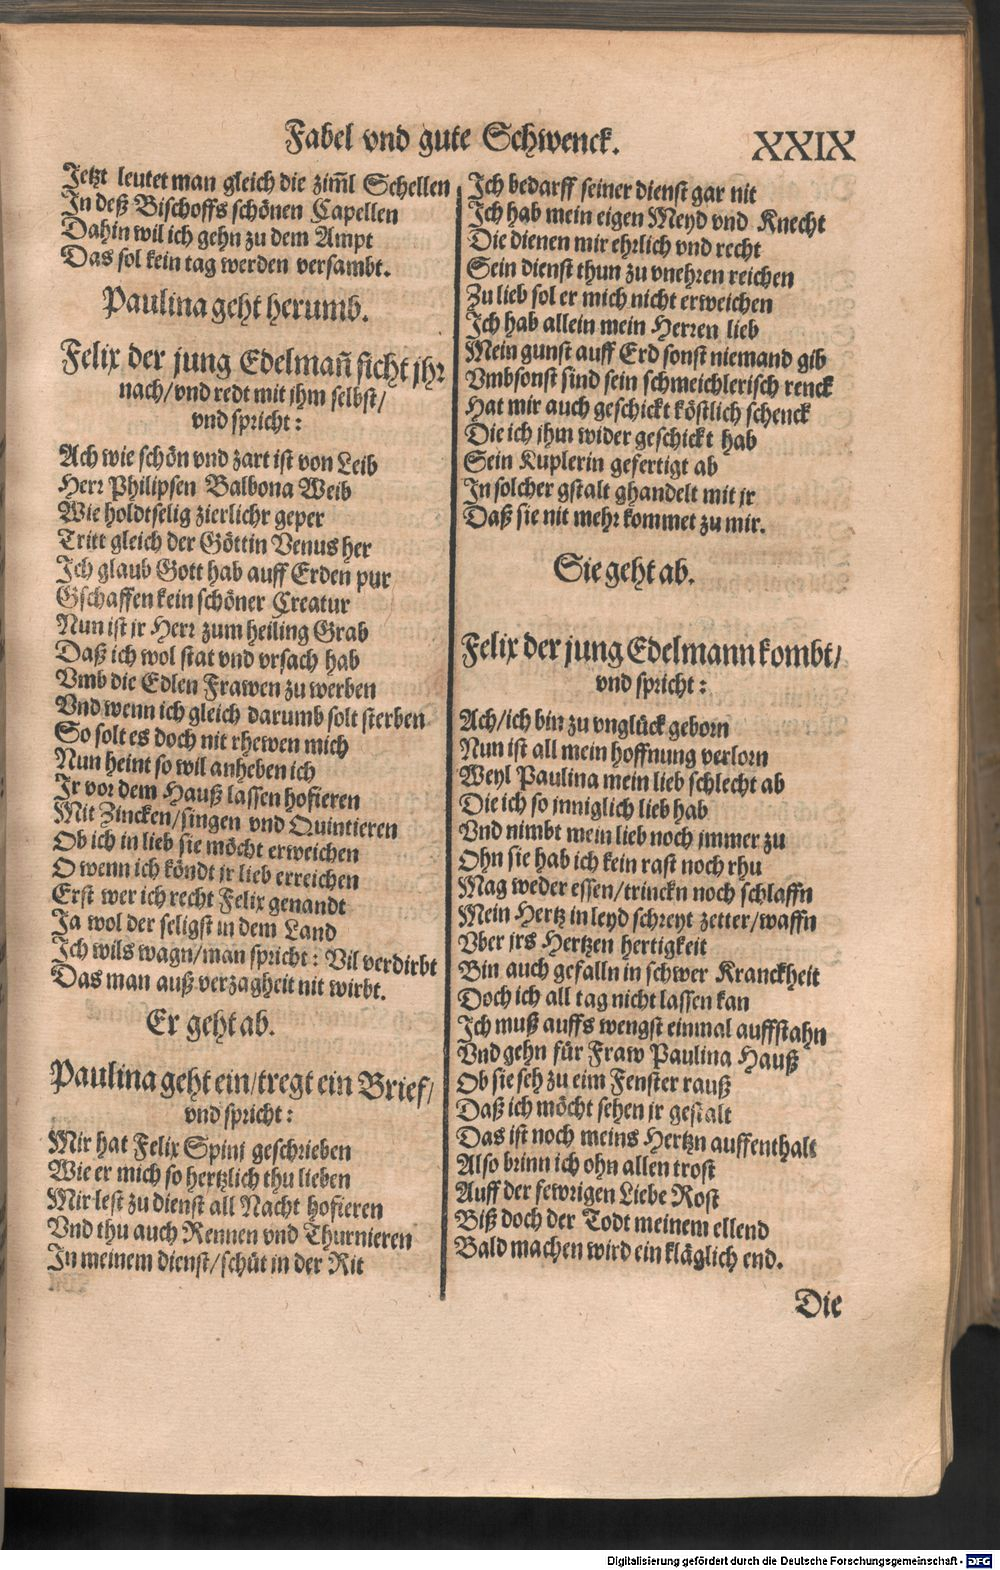 Fabel vnd gute Schwenck. XXIX
Jetzt leutet man gleich die zim̃l Schellen
In deß Bischoffs schönen Capellen
Dahin wil ich gehn zu dem Ampt
Das sol kein tag werden versambt.
Paulina geht herumb.
Felix der jung Edelmañ sicht jhr
nach/ vnd redt mit jhm selbst/
vnd spricht:
Ach wie schön vnd zart ist von Leib
Herr Philipsen Balbona Weib
Wie holdtselig zierlichr geper
Tritt gleich der Göttin Venus her
Ich glaub Gott hab auff Erden pur
Gschaffen kein schöner Creatur
Nun ist jr Herr zum heiling Grab
Daß ich wol stat vnd vrsach hab
Vmb die Edlen Frawen zu werben
Vnd wenn ich gleich darumb solt sterben
So solt es doch nit rhewen mich
Nun heint so wil anheben ich
Jr vor dem Hauß lassen hofieren
Mit Zincken/ singen vnd Quintieren
Ob ich in lieb sie möcht erweichen
O wenn ich köndt jr lieb erreichen
Erst wer ich recht Felix genandt
Ja wol der seligst in dem Land
Ich wils wagn/ man spricht: Vil verdirbt
Das man auß verzagheit nit wirbt.
Er geht ab.
Paulina geht ein/ tregt ein Brief/
vnd spricht:
Mir hat Felix Spinj geschrieben
Wie er mich so hertzlich thu lieben
Mir lest zu dienst all Nacht hofieren
Vnd thu auch Rennen vnd Thurnieren
In meinem dienst/ schüt in der Rit
Ich bedarff seiner dienst gar nit
Ich hab mein eigen Meyd vnd Knecht
Die dienen mir ehrlich vnd recht
Sein dienst thun zu vnehren reichen
Zu lieb sol er mich nicht erweichen
Ich hab allein mein Herren lieb
Mein gunst auff Erd sonst niemand gib
Vmbsonst sind sein schmeichlerisch renck
Hat mir auch geschickt köstlich schenck
Die ich jhm wider geschickt hab
Sein Kuplerin gefertigt ab
In solcher gstalt ghandelt mit jr
Daß sie nit mehr kommet zu mir.
Sie geht ab.
Felix der jung Edelmann kombt/
vnd spricht:
Ach/ ich bin zu vnglück geborn
Nun ist all mein hoffnung verlorn
Weyl Paulina mein lieb schlecht ab
Die ich so jnniglich lieb hab
Vnd nimbt mein lieb noch jmmer zu
Ohn sie hab ich kein rast noch rhu
Mag weder essen/ trinckn noch schlaffn
Mein Hertz in leyd schreyt zetter/ waffn
Vber jrs Hertzen hertigkeit
Bin auch gefalln in schwer Kranckheit
Doch ich all tag nicht lassen kan
Ich muß auffs wengst einmal auffstahn
Vnd gehn für Fraw Paulina Hauß
Ob sie seh zu eim Fenster rauß
Daß ich möcht sehen jr gestalt
Das ist noch meins Hertzn auffenthalt
Also brinn ich ohn allen trost
Auff der fewrigen Liebe Rost
Biß doch der Todt meinem ellend
Bald machen wird ein kläglich end.
Die
Digitalisierung gefördert durch die Deutsche Forschungsgemeinschaft - DFG